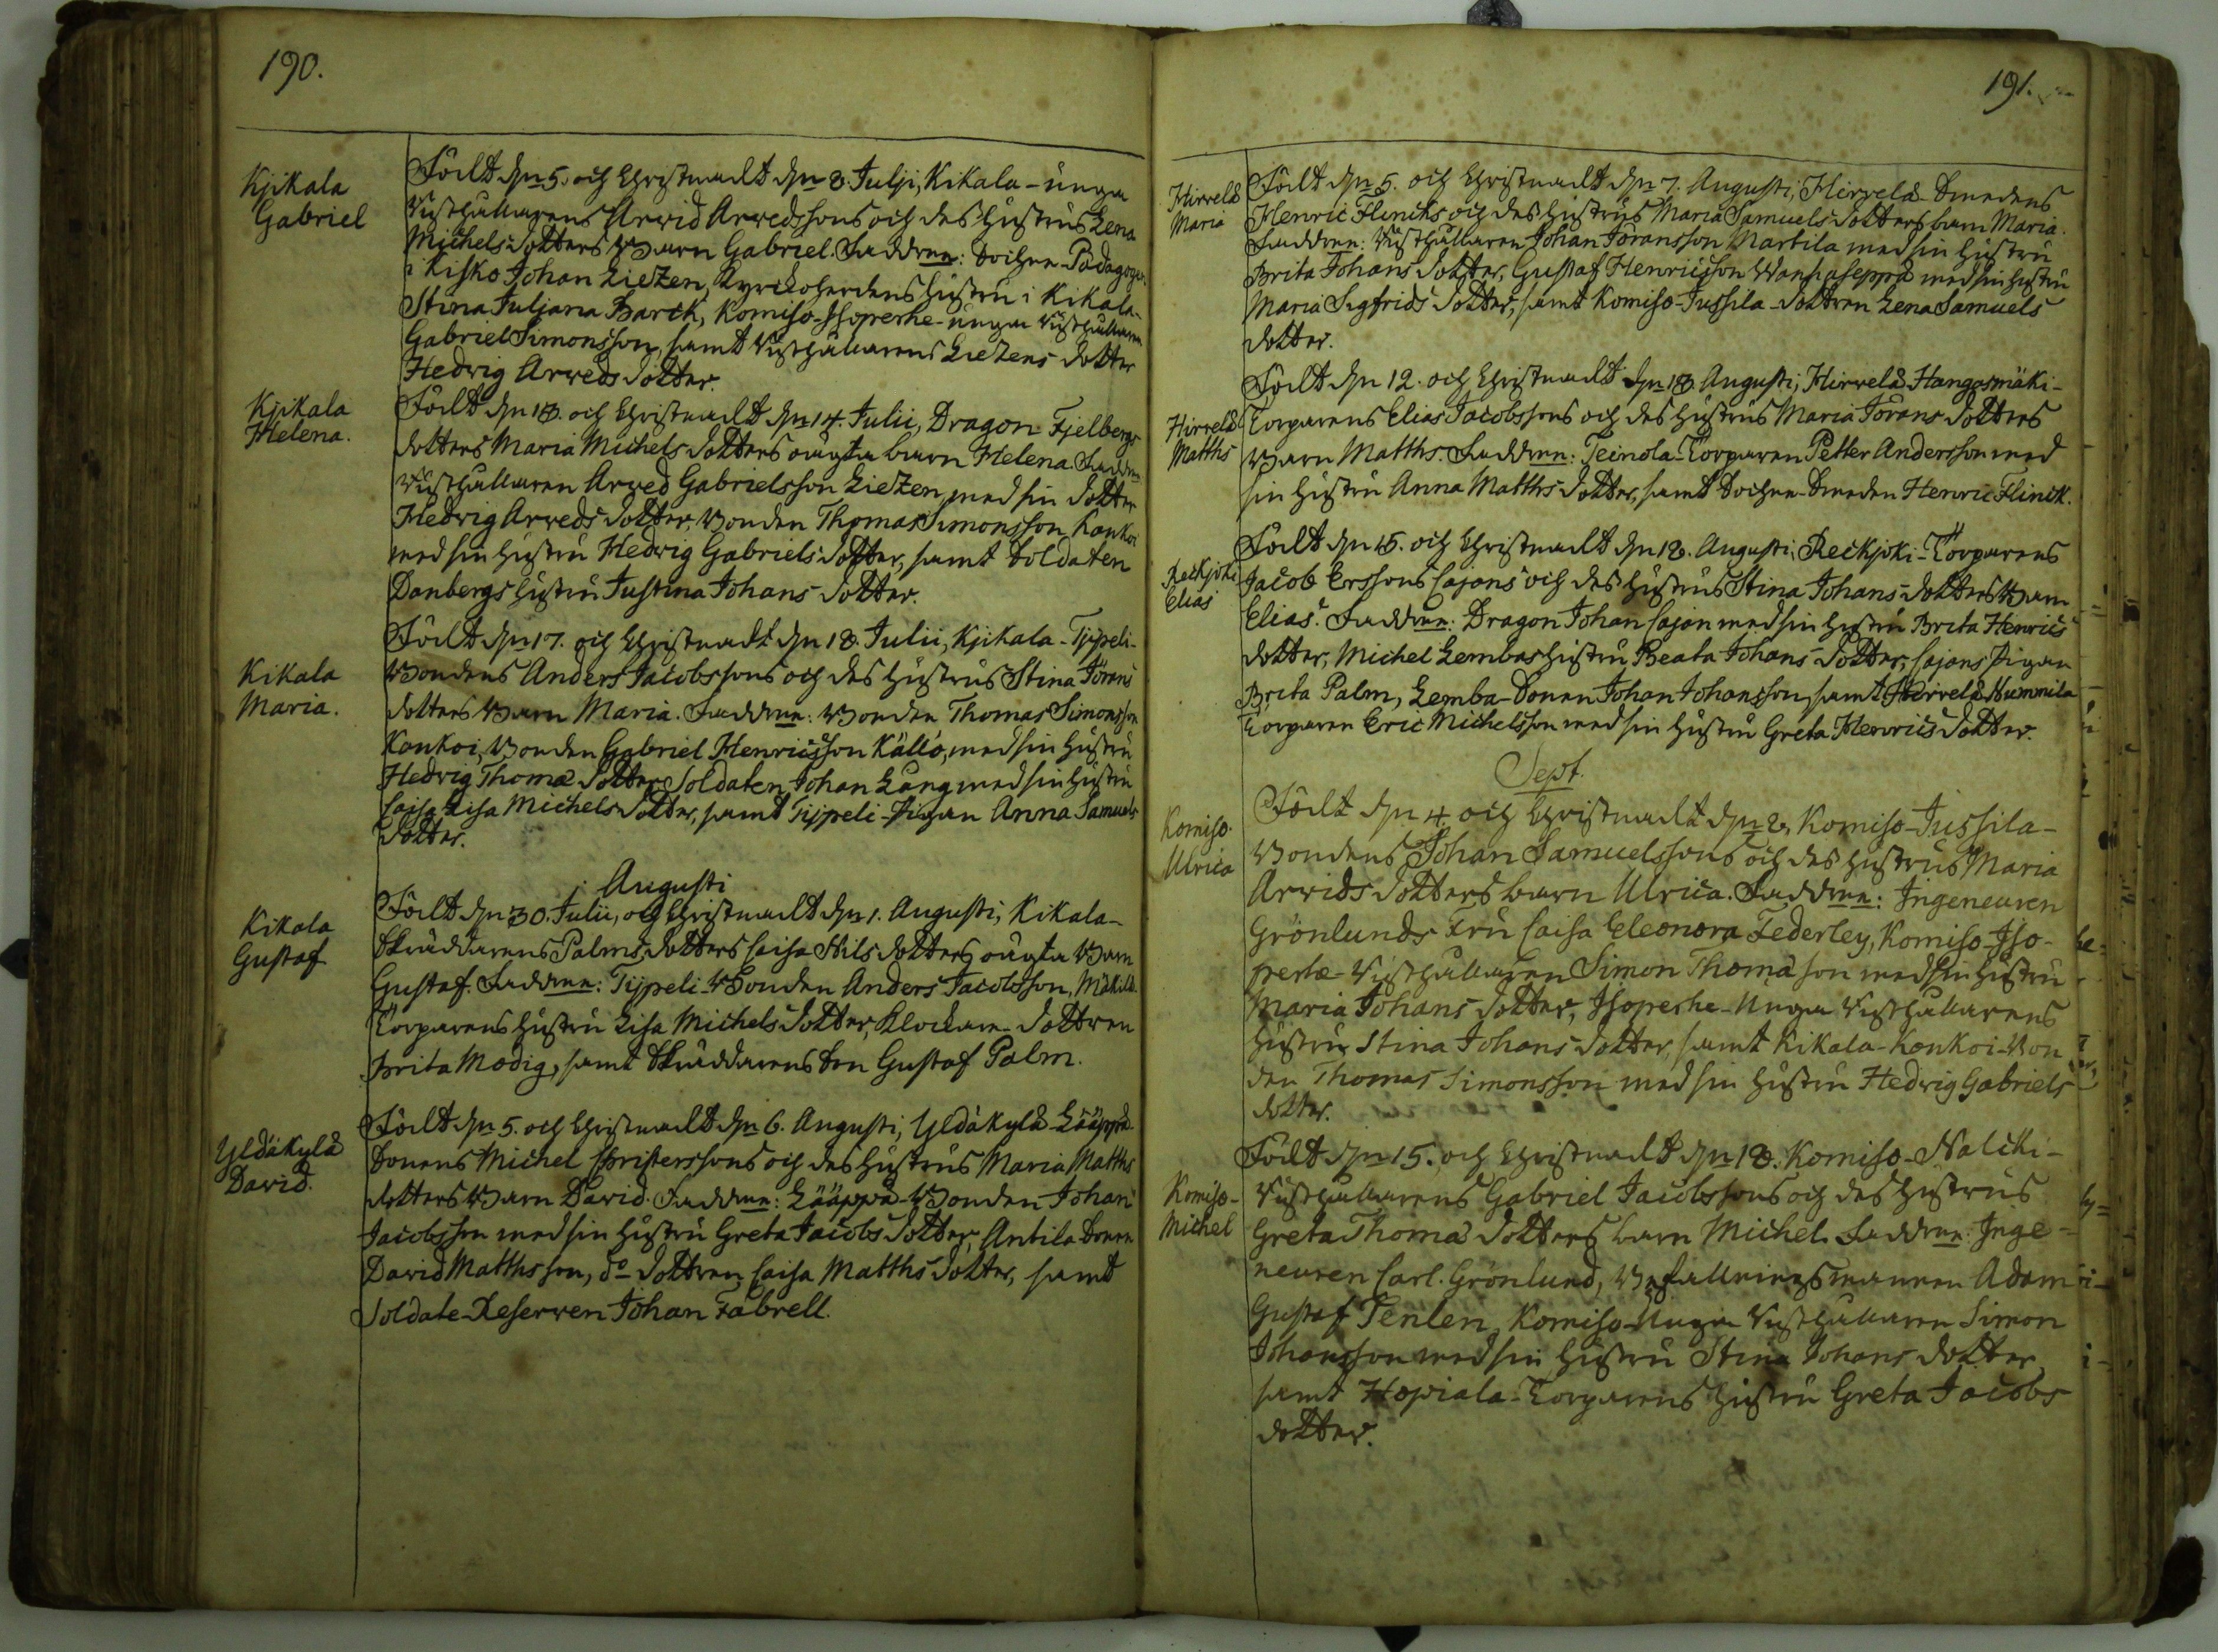 190.
Kjikala
Gabriel
Födt den 5. och Christnadt den 8. Julji, Kikala-unga
Rusthållarens Arvid Arvedssons och des hustrus Lena
Michels dotters Barn Gabriel. Faddrar: Sochne-Pädagogen
i Kisko Johan Liezen, Kyrckoherdens hustru i Kikala
Stina Juljana Barck, Komiso-Isoperhe-unga Rusthållaren
Gabriel Simonsson, samt Rusthållarens Liezens dotter
Hedvig Arveds dotter.
Kjikala
Helena.
Födt den 13. och Christnadt den 14. Julii, Dragon Fjelbergs
dotters Maria Michels dotters oägta barn Helena. Faddrar
Rusthållaren Arved Gabrielsson Liezen, med sin dotter
Hedvig Arveds dotter, Bonden Thomas Simonsson Konkoi
med sin hustru Hedvig Gabriels dotter, samt Soldaten
Danbergs hustru Justina Johans dotter.
Kikala
Maria.
Födt den 17. och Christnadt den 18. Julii, Kjikala-Tyjpeli-
Bondens Anders Jacobssons och des hustrus Stina Jörans
dotters Barn Maria. Faddrar: Bonden Thomas Simonsson
Konkoi, Bonden Gabriel Henricsson Källo, med sin hustru
Hedvig Thomæ dotter, Soldaten Johan Lång med sin hustru
Caisa Lisa Michels dotter, samt Tijpeli-Pigan Anna Samuels
dotter.
Augusti
Kikala
Gustaf
Födt den 30. Julii, och Christnadt den 1. Augusti, Kikala-
Skräddarens Palms, dotters Caisa Nils dotters oägta Barn
Gustaf. Faddrar: Tijpeli-Bonden Anders Jacobsson, Mäkilä
Torparens hustru Lisa Michels dotter, Klockare-dottren
Brita Modig, samt Skräddarens Son Gustaf Palm.
Yldäkylä
David.
Födt den 5. och Christnadt den 6. Augusti, Yldäkylä Lääppä-
Sonens Michel Christerssons och des hustrus Maria Matths
dotters Barn David. Faddrar: Lääppä-Bonden Johan
Jacobsson med sin hustru Greta Jacobs dotter, Antila Sonen
David Matthsson, do dottren Caisa Matths dotter, samt
Soldate-Reserven Johan Fabrell.
191.
Hirvelä
Maria
Födt den 5. och Christnadt den 7. Augusti, Hirvelä-Smedens
Henric Flincks och des hustrus Maria Samuels dotters barn Maria.
Faddrar: Rusthållaren Johan Jöransson Martila med sin hustru
Brita Johans dotter, Gustaf Henricsson Wanhaseppä med sin hustru
Maria Sigfrids dotter, samt Komiso-Jussila-dottren Lena Samuels
dotter.
Hirvelä
Matths
Födt den 12. och Christnadt den 13. Augusti, Hirvelä Hangasmäki-
Torparens Elias Jacobssons och des hustrus Maria Jörans dotters
Barn Matths. Faddrar: Teinola-Torparen Petter Andersson med
sin hustru Anna Matths dotter, samt Sochne-Smeden Henric Flinck.
Reckjoki
Elias
Födt den 15. och Christnadt den 18. Augusti, Reckjoki-Torparens
Jacob Erssons Cajans och des hustrus Stina Johans-dotters Barn
Elias. Faddrar: Dragon Johan Cajan med sin hustru Brita Henrics
dotter, Michel Lembas hustru Beata Johans dotter, Cajans Pigan
Brita Palm, Lemba-Sonen Johan Johansson, samt Hirvelä Nummila
Torparen Eric Michelsson med sin hustru Greta Henrics dotter.
Sept.
Komiso
Ulrica
Födt den 4. och Christnadt den 8, Komiso-Jussila-
Bondens Johan Samuelssons och des hustrus Maria
Arvids dotters barn Ulrica. Faddrar: Ingeneuren
Grönlunds Fru Caisa Eleonora Federley, Komiso-Iso-
perhe-Rusthållaren Simon Thomæ son med sin hustru
Maria Johans dotter, Isoperhe-Unga Rusthållarens
hustru Stina Johans dotter, samt Kikala-Konkoi-Bon
den Thomas Simonsson med sin hustru Hedvig Gabriels
dotter.
Komiso-
Michel
Födt den 15. och Christnadt den 18. Komiso-Nalcki-
Rusthållarens Gabriel Jacobssons och des hustrus
Greta Thomæ dotters barn Michel. Faddrar: Inge-
neuren Carl Grönlund, Befallningsmannen Adam
Gustaf Tenlen, Komiso-Unga Rusthållaren Simon
Johansson med sin hustru Stina Johans dotter,
samt Hopiala-Torparens hustru Greta Jacobs
dotter.